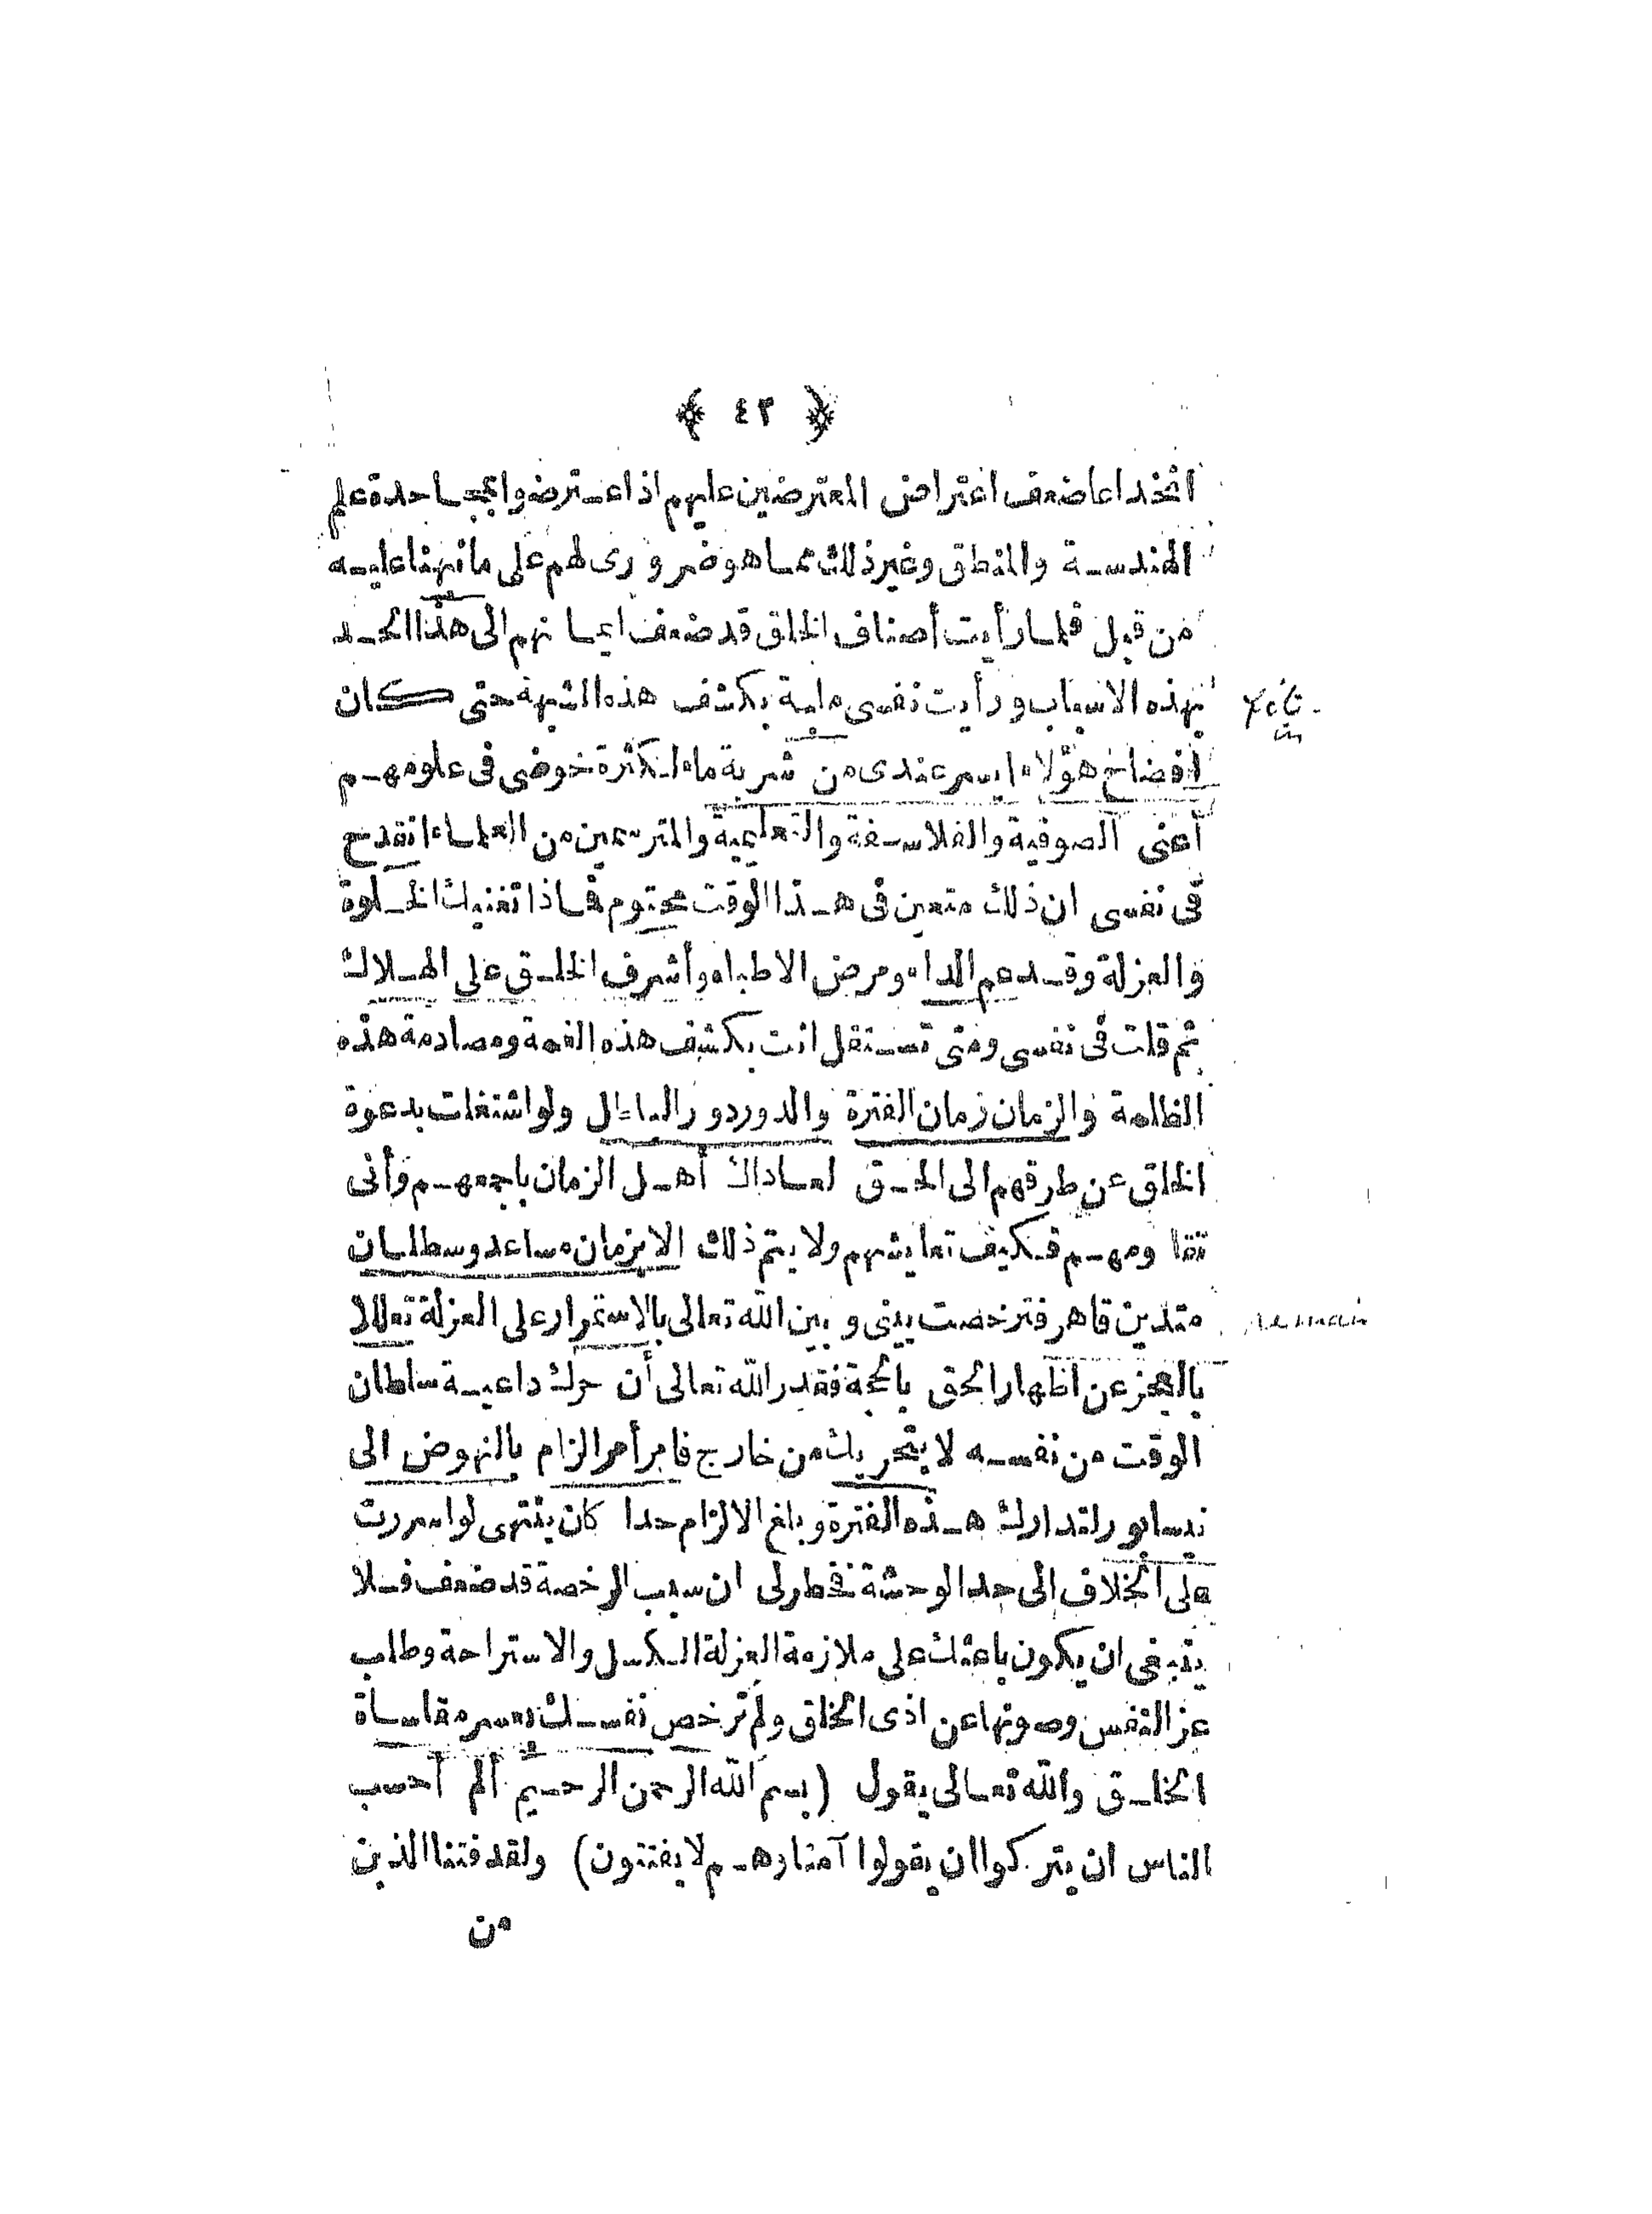 ﴿ ٤٢ ﴾
انخداعا ضعف اعتراض المعترضين عليهم اذا اعترضوا بمجاحدة علم
الهندسة والمنطق وغير ذلك مما هو ضرورى لهم على ما نبهنا عليه
من قبل فلما رأيت أصناف الخلق قد ضعف ايمانهم الى هذا الحد
بهذه الاسباب ورأيت نفسى ملية بكشف هذه الشبهة حتى كان
افضاح هؤلاء ايسر عندى من شربة ماء لكثرة خوضى فى علومهم
أعنى الصوفية والفلاسفة والتعليمية والمترسمين من العلماء انقدح
فى نفسى ان ذلك متعين فى هذا الوقت محتوم فماذا تغنيك الخلوة
والعزلة وقد عم الداء ومرض الاطباء وأشرف الخلق على الهلاك
ثم قلت فى نفسى ومتى تستقل انت بكشف هذه الغمة ومصادمة هذه
الظلمة والزمان زمان الفترة والدور دور الباطل ولو اشتغلت بدعوة
الخلق عن طرقهم الى الحق لعاداك أهل الزمان باجمعهم وأنى
تقاومهم فكيف تعايشهم ولا يتم ذلك الا بزمان مساعد وسطلان
متدين قاهر فترخصت بينى وبين الله تعالى بالاستمرار على العزلة تعللا
بالعجز عن اظهار الحق بالحجة فقدر الله تعالى أن حرك داعية سلطان
الوقت من نفسه لا بتحريك من خارج فامر أمر الزام بالنهوض الى
نيسابور لتدارك هذه الفترة وبلغ الالزام حدا كان ينتهى لو اسررت
على الخلاف الى حد الوحشة فخطر لى ان سبب الرخصة قد ضعف فلا
ينبغى ان يكون باعثك على ملازمة العزلة الكسل والاستراحة وطلب
عز النفس وصونها عن اذى الخلق ولم ترخص نفسك بعسر مقاساة
الخلق والله تعالى يقول (بسم الله الرحمن الرحيم ألم أحسب
الناس ان يتركوا ان يقولوا آمنا وهم لا يفتنون) ولقد فتنا الذين
من